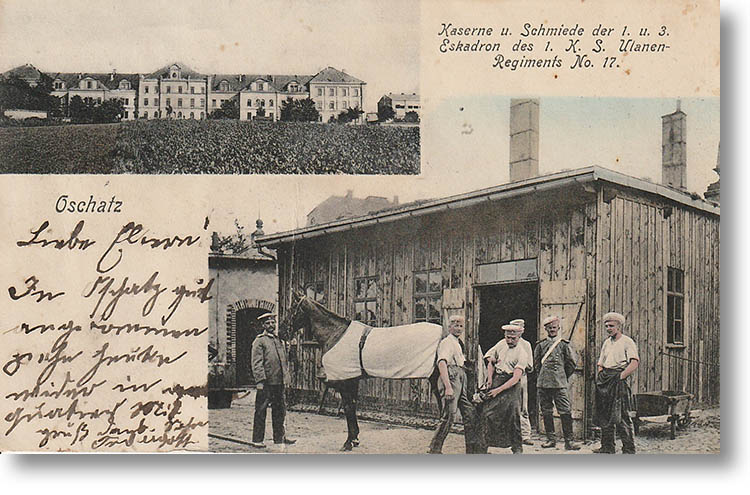 Kaserne u. Schmiede der 1. u. 3.
Eskadron des 1. K. S. Ulanen-
Regiments No. 17.
Oschatz
Liebe Eltern!
In Oschatz gut
angekommen
gehe heute
wieder in
gruß